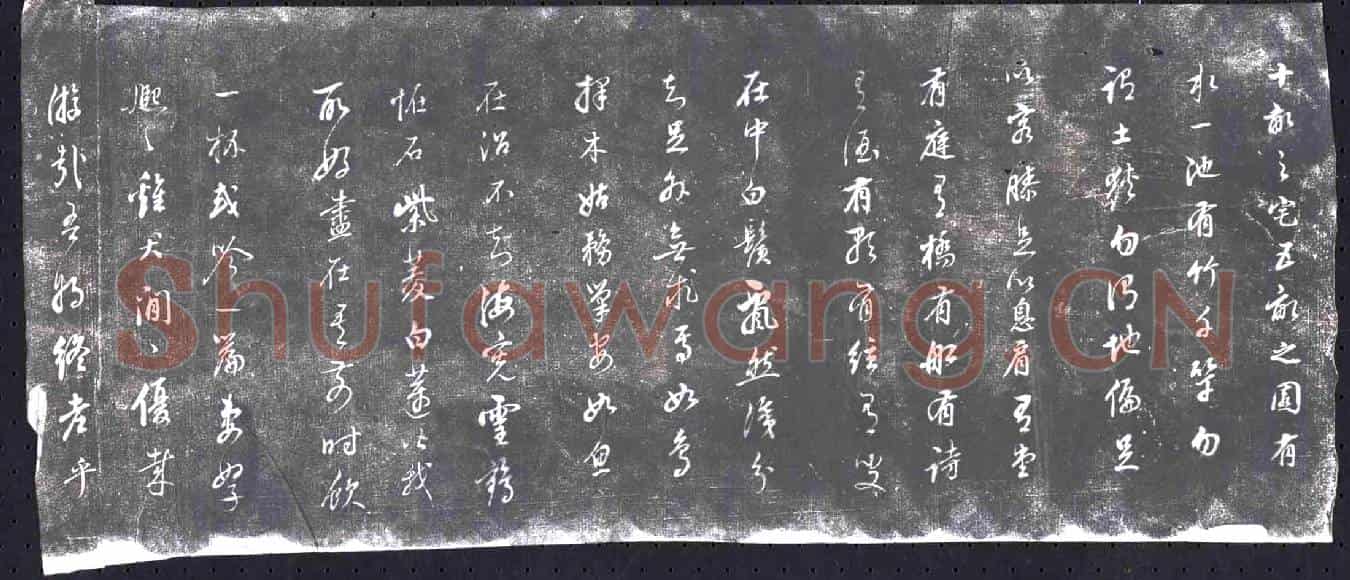 十畝之宅五畝之園有
水一池有竹千竿勿
謂土狹勿謂地偏足
以容膝足以息肩有堂
有庭有橋有船有詩
有酒有歌有絃有叟
在中白鬚飄然識分
知足外無求焉如鳥
擇木姑務巢安如魚
在沼不知海寬靈鶴
怪石紫菱白蓮皆我
所好盡在吾前時飲
一杯或吟一篇妻孥
熙〻雞犬閒〻優哉
游哉吾將終老乎
Shufawang.CN